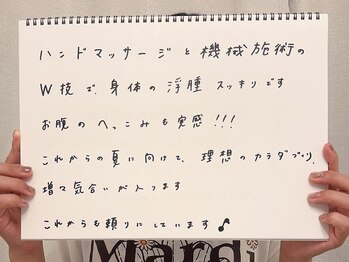 ハンドマッサージと機械施術の
W技で、身体の浮腫スッキリです
お腹のへっこみも実感!!!
これからの夏に向けて、理想のカラダづくり、
増々気合いが入ります
これからも頼りにしています♪
Mardi